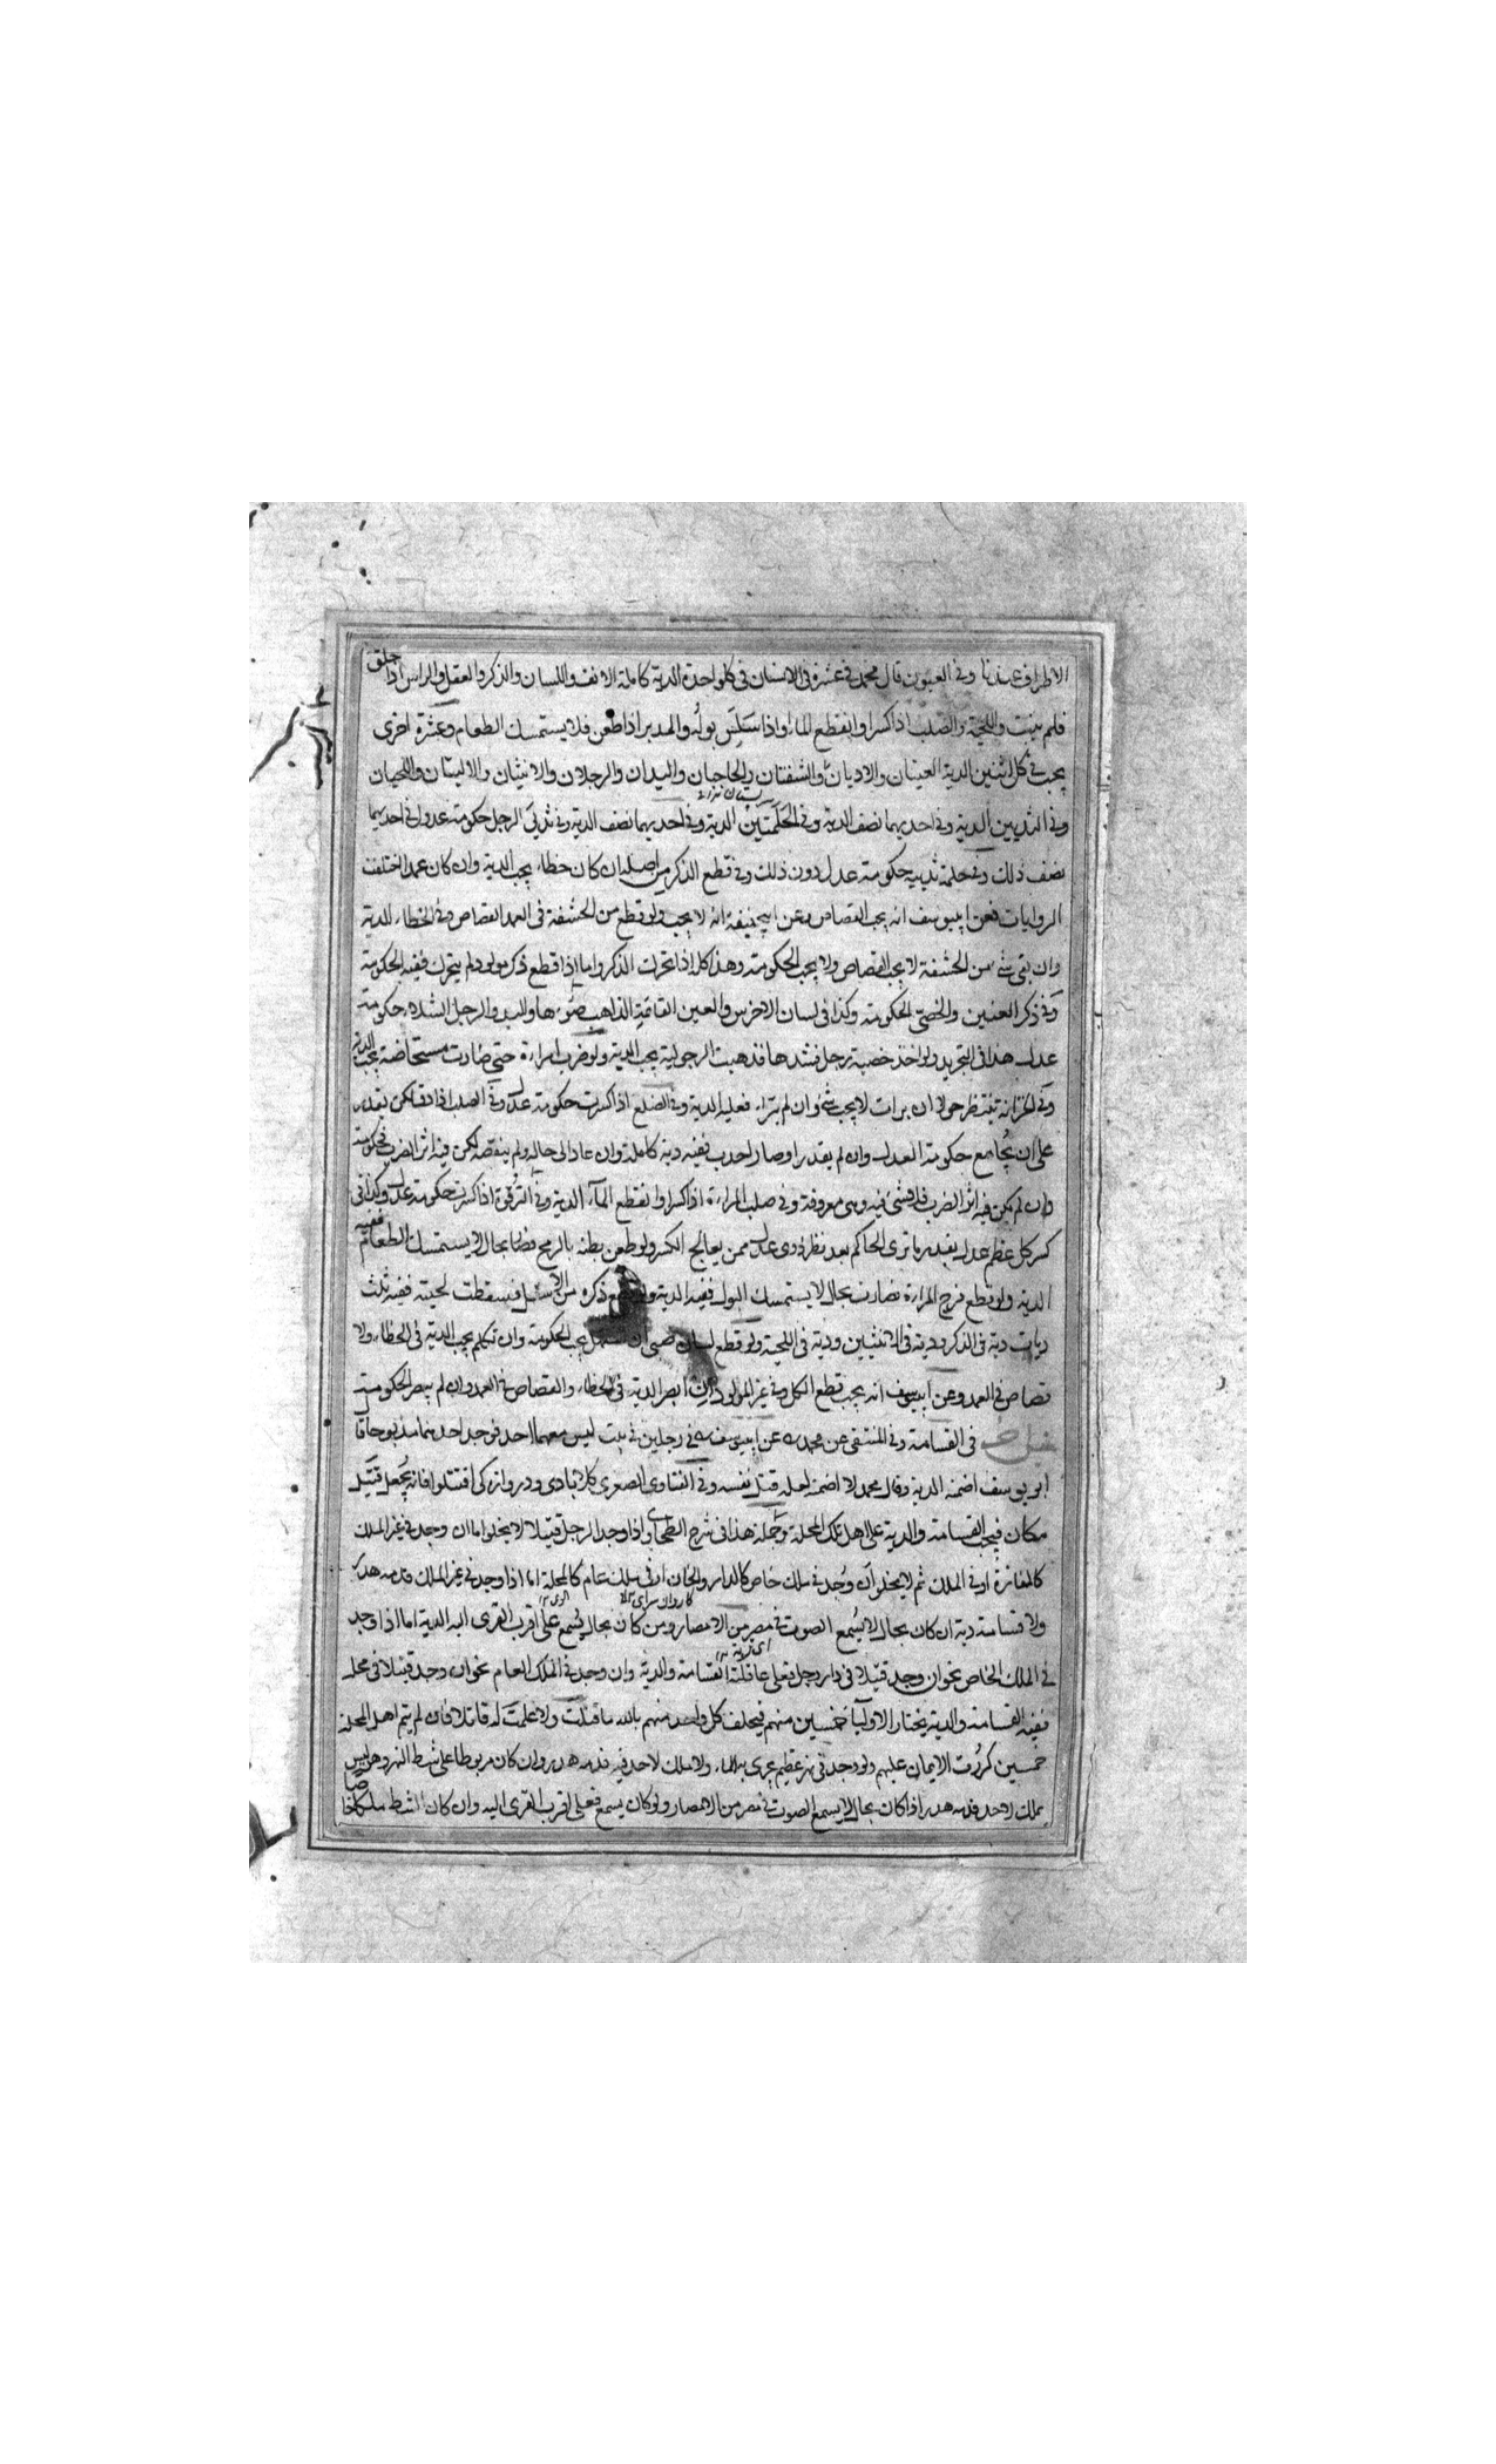 الاطراف عندنا وفى العيون قال محمد فى عشرة فى الانسان فى كل واحدة الدية كاملة الانف واللسان والذكر والعقل والراس اذا حلق
فلم ينبت واللحية والصلب اذا كسر او انقطع الماء واذا سلس بوله والدبر اذا طعن فلا يستمسك الطعام وعشرة اخرى
يجب فى كل اثنين الدية العينان والاذنان والشفتان والحاجبان واليدان والرجلان والانثيان والاليتان واللحيان
وفى الثديين الدية وفى احديهما نصف الدية وفى الحلمتين الدية وفى احديهما نصف الدية وفى ثديى الرجل حكومة عدل وفى احديهما
نصف ذلك وفى حلمة ثدييه حكومة عدل دون ذلك وفى قطع الذكر من اصله ان كان خطاء يجب الدية وان كان عمدا اختلفت
الروايات فعن ابيوسف انه يجب القصاص وعن ابيحنيفة انه لا يجب ولو قطع من الحشفة فى العمد القصاص وفى الخطاء الدية
وان بقى شئ من الحشفة لا يجب القصاص ولا يجب الحكومة وهذا كله اذا تحرك الذكر واما اذا قطع ذكر مولود لم يتحرك ففيه الحكومة
وفى ذكر العنين والخصى الحكومة وكذا فى لسان الاخرس والعين القائمة الذاهب ضوءها واليد والرجل الشلاء حكومة
عدل هذا فى التجريد ولو اخذ خصية رجل فشدها فذهبت الرجولية يجب الدية ولو ضرب امراءة حتى صارت مستحاضة يجب الدية
وفى الخزانة تنتظر حولا ان برات لا يجب شئ وان لم تبراء فعليه الدية وفى الضلع اذا كسرت حكومة عدل وفى الصلب اذا دق لكن يقدر
على ان يجامع حكومة العدل وان لم يقدر او صار احدب ففيه دية كاملة وان عاد الى حاله ولم ينقصه لكن فيه اثر الضرب فحكومة
وان لم يكن فيه اثر الضرب فلا شئ فيه وهى معروفة وفى صلب المراءة اذا كسر او انقطع الماء الدية وفى الترقوة اذا كسرت حكومة عدل وكذا فى
كسر كل عظم عدل يقدر ما ترى الحاكم بعد نظر ذوى عدل ممن يعالج الكسر ولو طعن بطنه بالرمح فصار بحال لا يستمسك الطعام ففيه
الدية ولو قطع فرج المراءة فصارت بحال لا يستمسك البول ففيه الدية ولو قطع ذكره من الاصل فسقطت لحيته ففيه ثلث
ديات دية فى الذكر ودية فى الانثيين ودية فى اللحية ولو قطع لسان صبى ان استهل يجب الحكومة وان تكلم يجب الدية فى الخطاء ولا
قصاص فى العمد وعن ابيوسف انه يجب قطع الكل وفى عين المولود ان ابصر الدية فى الخطاء والقصاص فى العمد وان لم يبصر الحكومة
فصل فى القسامة وفى المنتقى عن محمد عن ابيوسف فى رجلين فى بيت ليس معهما احد فوجد احدهما مذبوحا قال
ابو يوسف اضمنه الدية وقال محمد لا اضمنه لعله قتل نفسه وفى الفتاوى الصغرى كلاباذى ودروازه كى اقتتلوا فانه يجعل قتيل
مكان فيجب القسامة والدية على اهل تلك المحلة وجملة هذا فى شرح الطحاوى واذا وجد الرجل قتيلا لا يخلو اما ان وجد فى غير الملك
كالمفازة او فى الملك ثم لا يخلو ان وجد فى ملك خاص كالدار والخان او فى ملك عام كالمحلة اما اذا وجد فى غير الملك فدمه هدر
ولا قسامة دية ان كان بحال لا يسمع الصوت فى مصر من الامصار ومن كان بحال يسمع على اقرب القرى اليه الدية اما اذا وجد
فى الملك الخاص نحو ان وجد قتيلا فى دار رجل فعلى عاقلة القسامة والدية وان وجد فى الملك العام نحو ان وجد قتيلا فى محلة
ففيه القسامة والدية يختار الاوليا خمسين منهم فيحلف كل واحد منهم بالله ما قتلت ولا علمت له قاتلا فان لم يتم اهل المحلة
خمسين كررت الايمان عليهم ولو وجد فى نهر عظيم يجرى به الماء ولا ملك لاحد فيه فدمه هدر وان كان مربوطا على شط النهر وهو ليس
بملك لاحد فدمه هدر اذا كان بحال لا يسمع الصوت فى مصر من الامصار ولو كان يسمع فعلى اقرب القرى اليه وان كان الشط ملكا خاصا